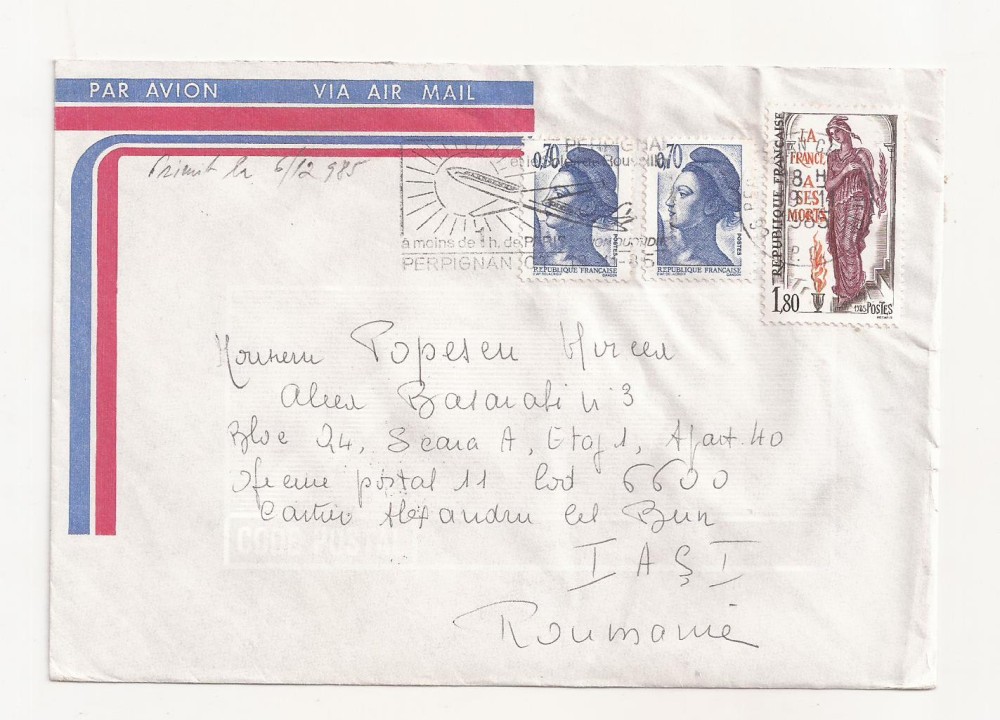 PAR AVION VIA AIR MAIL
Primit la 6/12 985
PERPIGNAN
et le Soleil du Roussillon
à moins de 1h. de PARIS AVION QUOTIDIEN
PERPIGNAN
0,70
POSTES
REPUBLIQUE FRANÇAISE
0,70
POSTES
REPUBLIQUE FRANÇAISE
REPUBLIQUE FRANÇAISE
LA
FRANCE
A
SES
MORTS
1,80
1985 POSTES
8H
1985
Monsieur Popescu Mircea
Aleea Basarabi n 3
Bloc 24, Scara A, Etaj 1, Apart. 40
Oficiul postal 11 Cod 6600
Cartier Alexandru cel Bun
IAŞI
Roumanie
CODE POSTAL